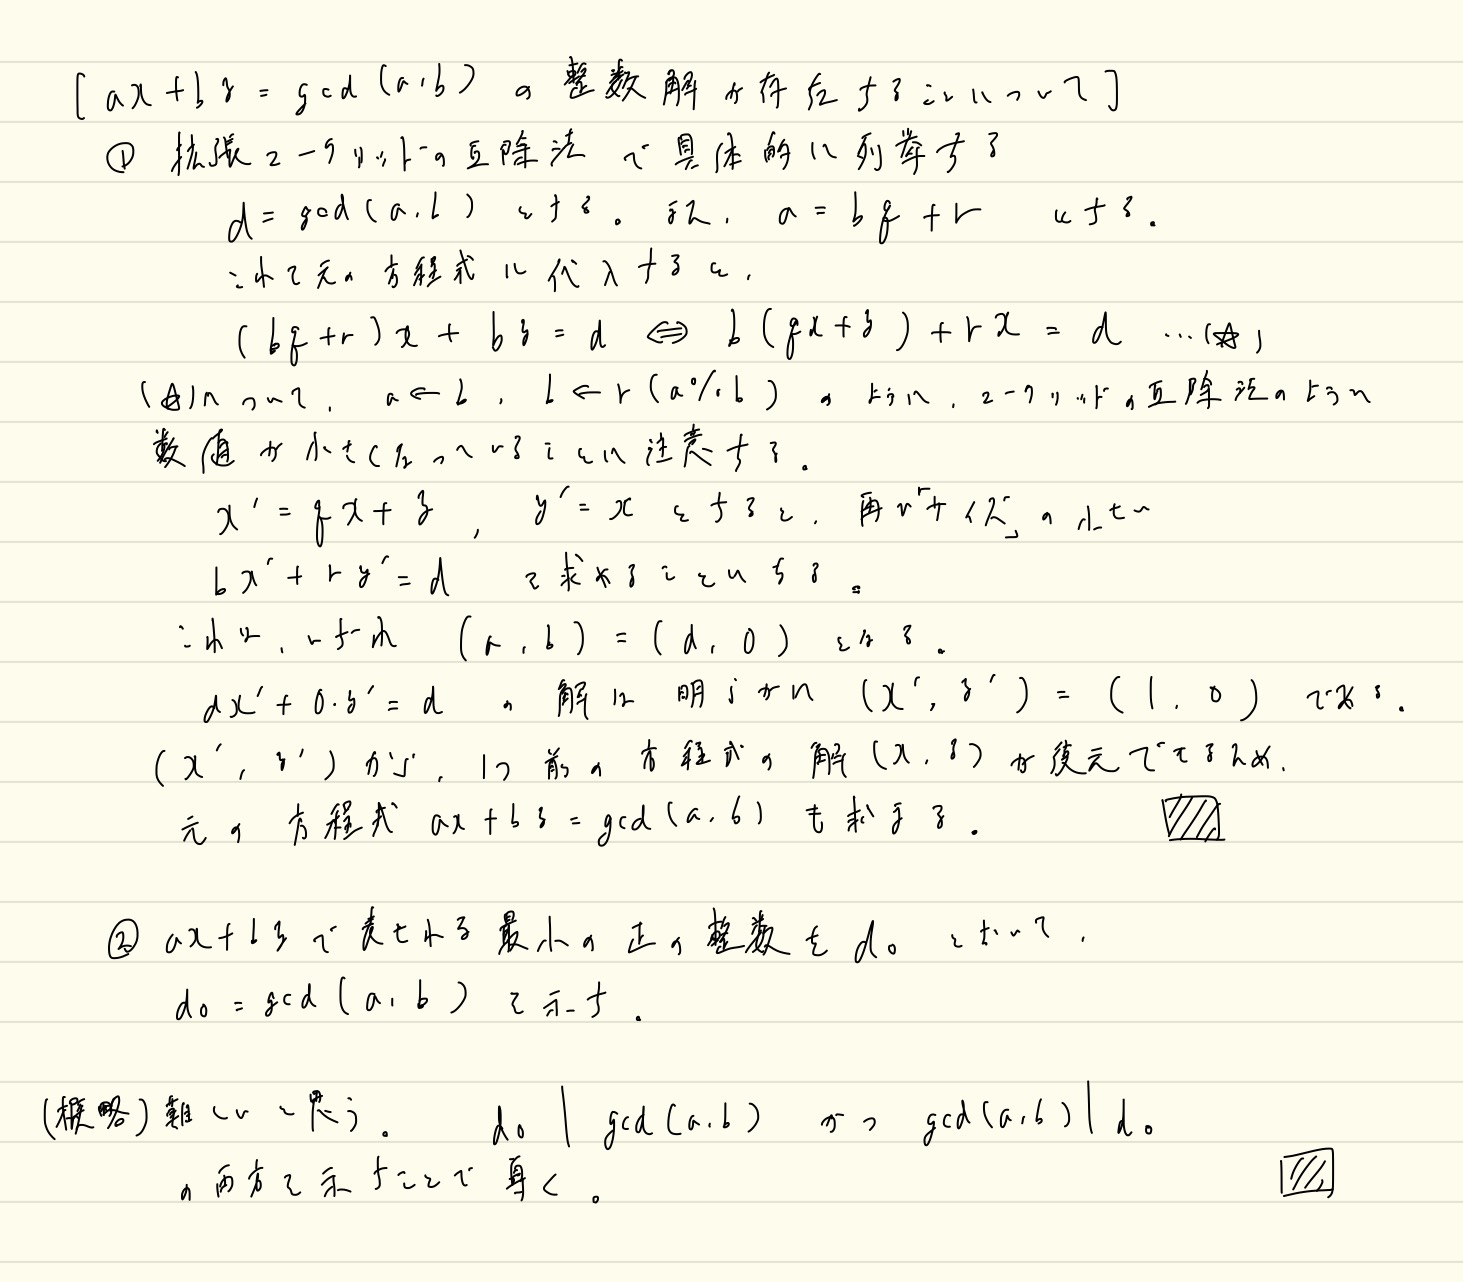 [ax+by = gcd(a,b) の整数解が存在することについて]
① 拡張ユークリッドの互除法で具体的に列挙する
d = gcd(a,b) とする。また, a = bq + r とする.
これを元の方程式に代入すると,
(bq+r)x + by = d ⇔ b(qx+y) + rx = d …(☆)
(☆)について, a ← b, b ← r (a%b) のように, ユークリッドの互除法のように
数値が小さくなっていることに注意する.
x' = qx + y, y' = x とすると, 再び「サイズ」の小さい
bx' + ry' = d を求めることになる。
これは, いずれ (a,b) = (d, 0) となる.
dx' + 0・y' = d の解は明らかに (x', y') = (1, 0) である.
(x', y') から, 1つ前の方程式の解 (x, y) が復元できるため,
元の方程式 ax+by = gcd(a,b) も求まる.
② ax+by で表せれる最小の正の整数を d₀ とおいて,
d₀ = gcd(a,b) を示す.
(概略) 難しいと思う. d₀ | gcd(a,b) かつ gcd(a,b) | d₀
の両方を示すことで導く。